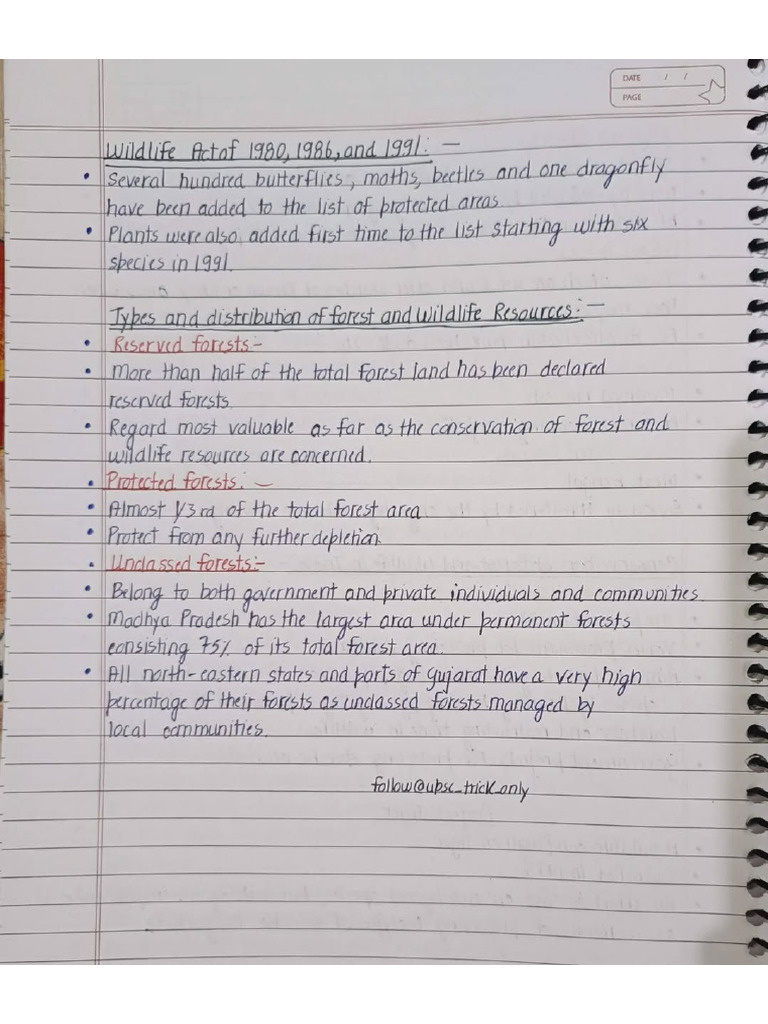 DATE / /
PAGE
Wildlife Act of 1980, 1986, and 1991: –
• Several hundred butterflies, moths, beetles and one dragonfly
have been added to the list of protected areas
• Plants were also added first time to the list starting with six
species in 1991.
Types and distribution of forest and Wildlife Resources: –
• Reserved forests:-
• More than half of the total forest land has been declared
reserved forests.
• Regard most valuable as far as the conservation of forest and
wildlife resources are concerned.
• Protected forests: –
• Almost 1/3rd of the total forest area.
• Protect from any further depletion.
• Unclassed forests:-
• Belong to both government and private individuals and communities.
• Madhya Pradesh has the largest area under permanent forests
consisting 75% of its total forest area.
• All north-eastern states and parts of Gujarat have a very high
percentage of their forests as unclassed forests managed by
local communities.
follow@upsc_trick_only